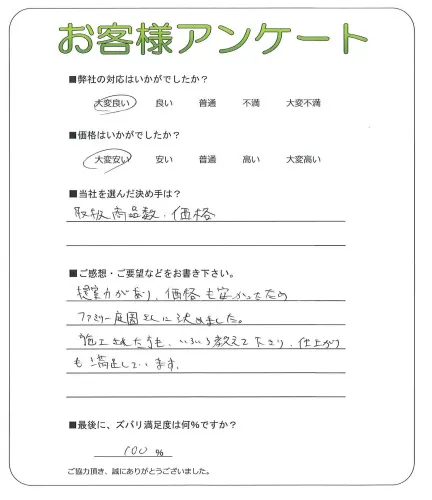 お客様アンケート
■弊社の対応はいかがでしたか？
大変良い 良い 普通 不満 大変不満
■価格はいかがでしたか？
大変安い 安い 普通 高い 大変高い
■当社を選んだ決め手は？
取扱商品数・価格
■ご感想・ご要望などをお書き下さい。
提案力があり、価格も安かったため
ファミリー庭園さんに決めました。
施工された方も、いろいろ教えて下さり、仕上がり
も満足しています。
■最後に、ズバリ満足度は何％ですか？
100 ％
ご協力頂き、誠にありがとうございました。